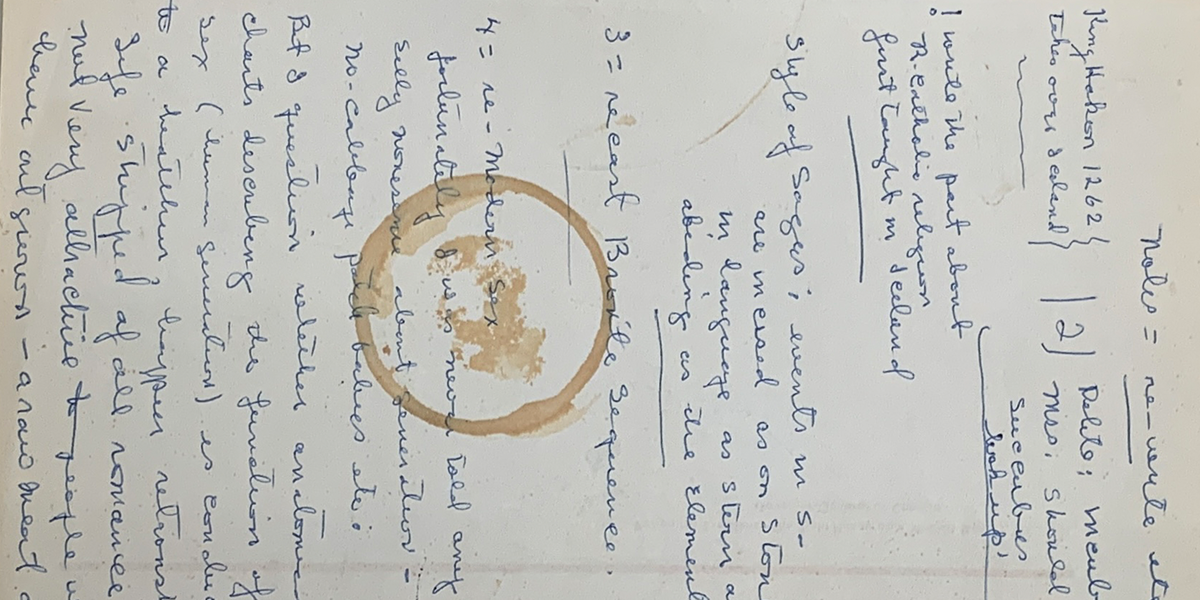 Notes = re-write etc
King Hakon 1262} Delete; incub
Takes over Iceland} 2) Mss; should
Succubus
look up
! wrote the part about
R. Catholic religion
first taught in Iceland
Style of Sagas; events in S-
are incised as on ston
in language as stern a
abiding as the element
3 = recast Bronte sequence.
4 = re-Modern sex
fortunately I was never told any
silly nonsense about generation -
no-cabbage patch babies etc:
But I question whether anatomic
charts describing the function of
sex (human generation) is conduc
to a healthier, happier relations
Life stripped of all romance
not very attractive to people w
have outgrown - a raw meat